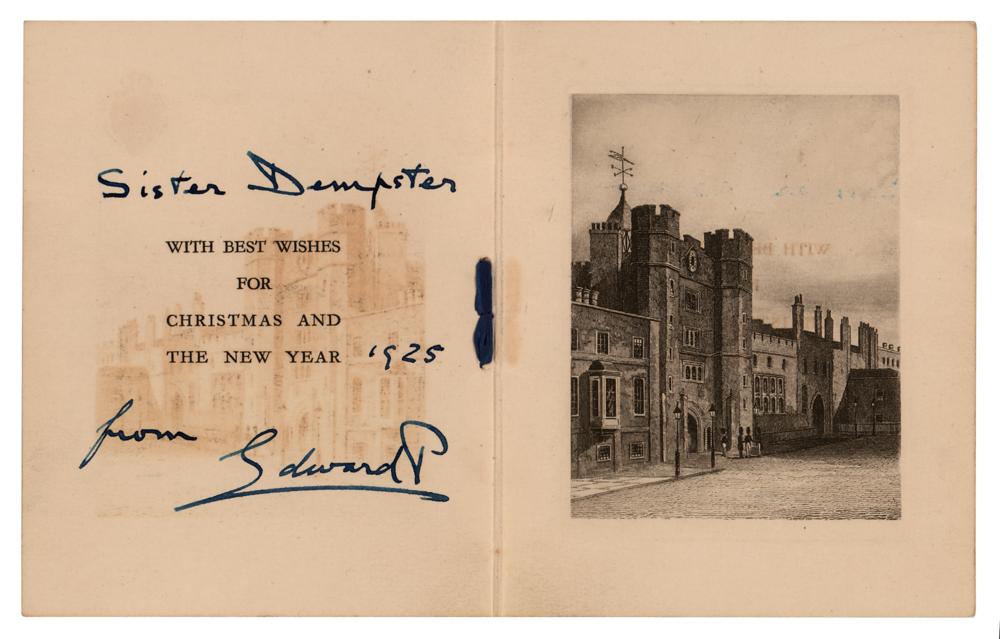 Sister Dempster
WITH BEST WISHES
FOR
CHRISTMAS AND
THE NEW YEAR 1925
from
Edward P